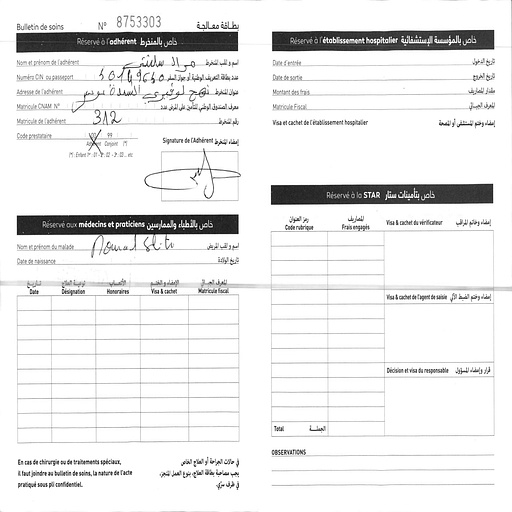 Bulletin de soins N° 8753303 بطاقة معالجة
Réservé à l'adhérent خاص بالمنخرط
Nom et prénom de l'adhérent مراد سليتي اسم و لقب المنخرط
Numéro CIN ou passeport عدد بطاقة التعريف الوطنية أو جواز السفر
Adresse de l'adhérent نهج عنوان المنخرط
Matricule CNAM N° معرف الصندوق الوطني للتأمين على المرض عدد
Matricule de l'adhérent 312 رقم المنخرط
Code prestataire 00 99
Adhérent Conjoint (*)
(*) : Enfant 1er : 01 - 2è : 02 - 3è : 03 ... etc
Signature de l'Adhérent إمضاء المنخرط
Réservé aux médecins et praticiens خاص بالأطباء والممارسين
Nom et prénom du malade Mourad Sliti اسم و لقب المريض
Date de naissance تاريخ الولادة
تاريخ نوعية العلاج الأتعاب الإمضاء و الختم المعرف الجبائي
Date Désignation Honoraires Visa & cachet Matricule fiscal
En cas de chirurgie ou de traitements spéciaux,
il faut joindre au bulletin de soins, la nature de l'acte
pratiqué sous pli confidentiel.
في حالات الجراحة أو العلاج الخاص
يجب مصاحبة بطاقة العلاج، بنوع العمل المنجز،
في ظرف سري.
Réservé à l'établissement hospitalier خاص بالمؤسسة الإستشفائية
Date d'entrée تاريخ الدخول
Date de sortie تاريخ الخروج
Montant des frais مقدار المصاريف
Matricule Fiscal المعرف الجبائي
Visa et cachet de l'établissement hospitalier إمضاء وختم المستشفى أو المصحة
Réservé à la STAR خاص بتأمينات ستار
رمز العنوان المصاريف
Code rubrique Frais engagés
Visa & cachet du vérificateur إمضاء وخاتم المراقب
Visa & cachet de l'agent de saisie إمضاء وختم الضبط الآلي
Décision et visa du responsable قرار وإمضاء المسؤول
Total الجملة
OBSERVATIONS